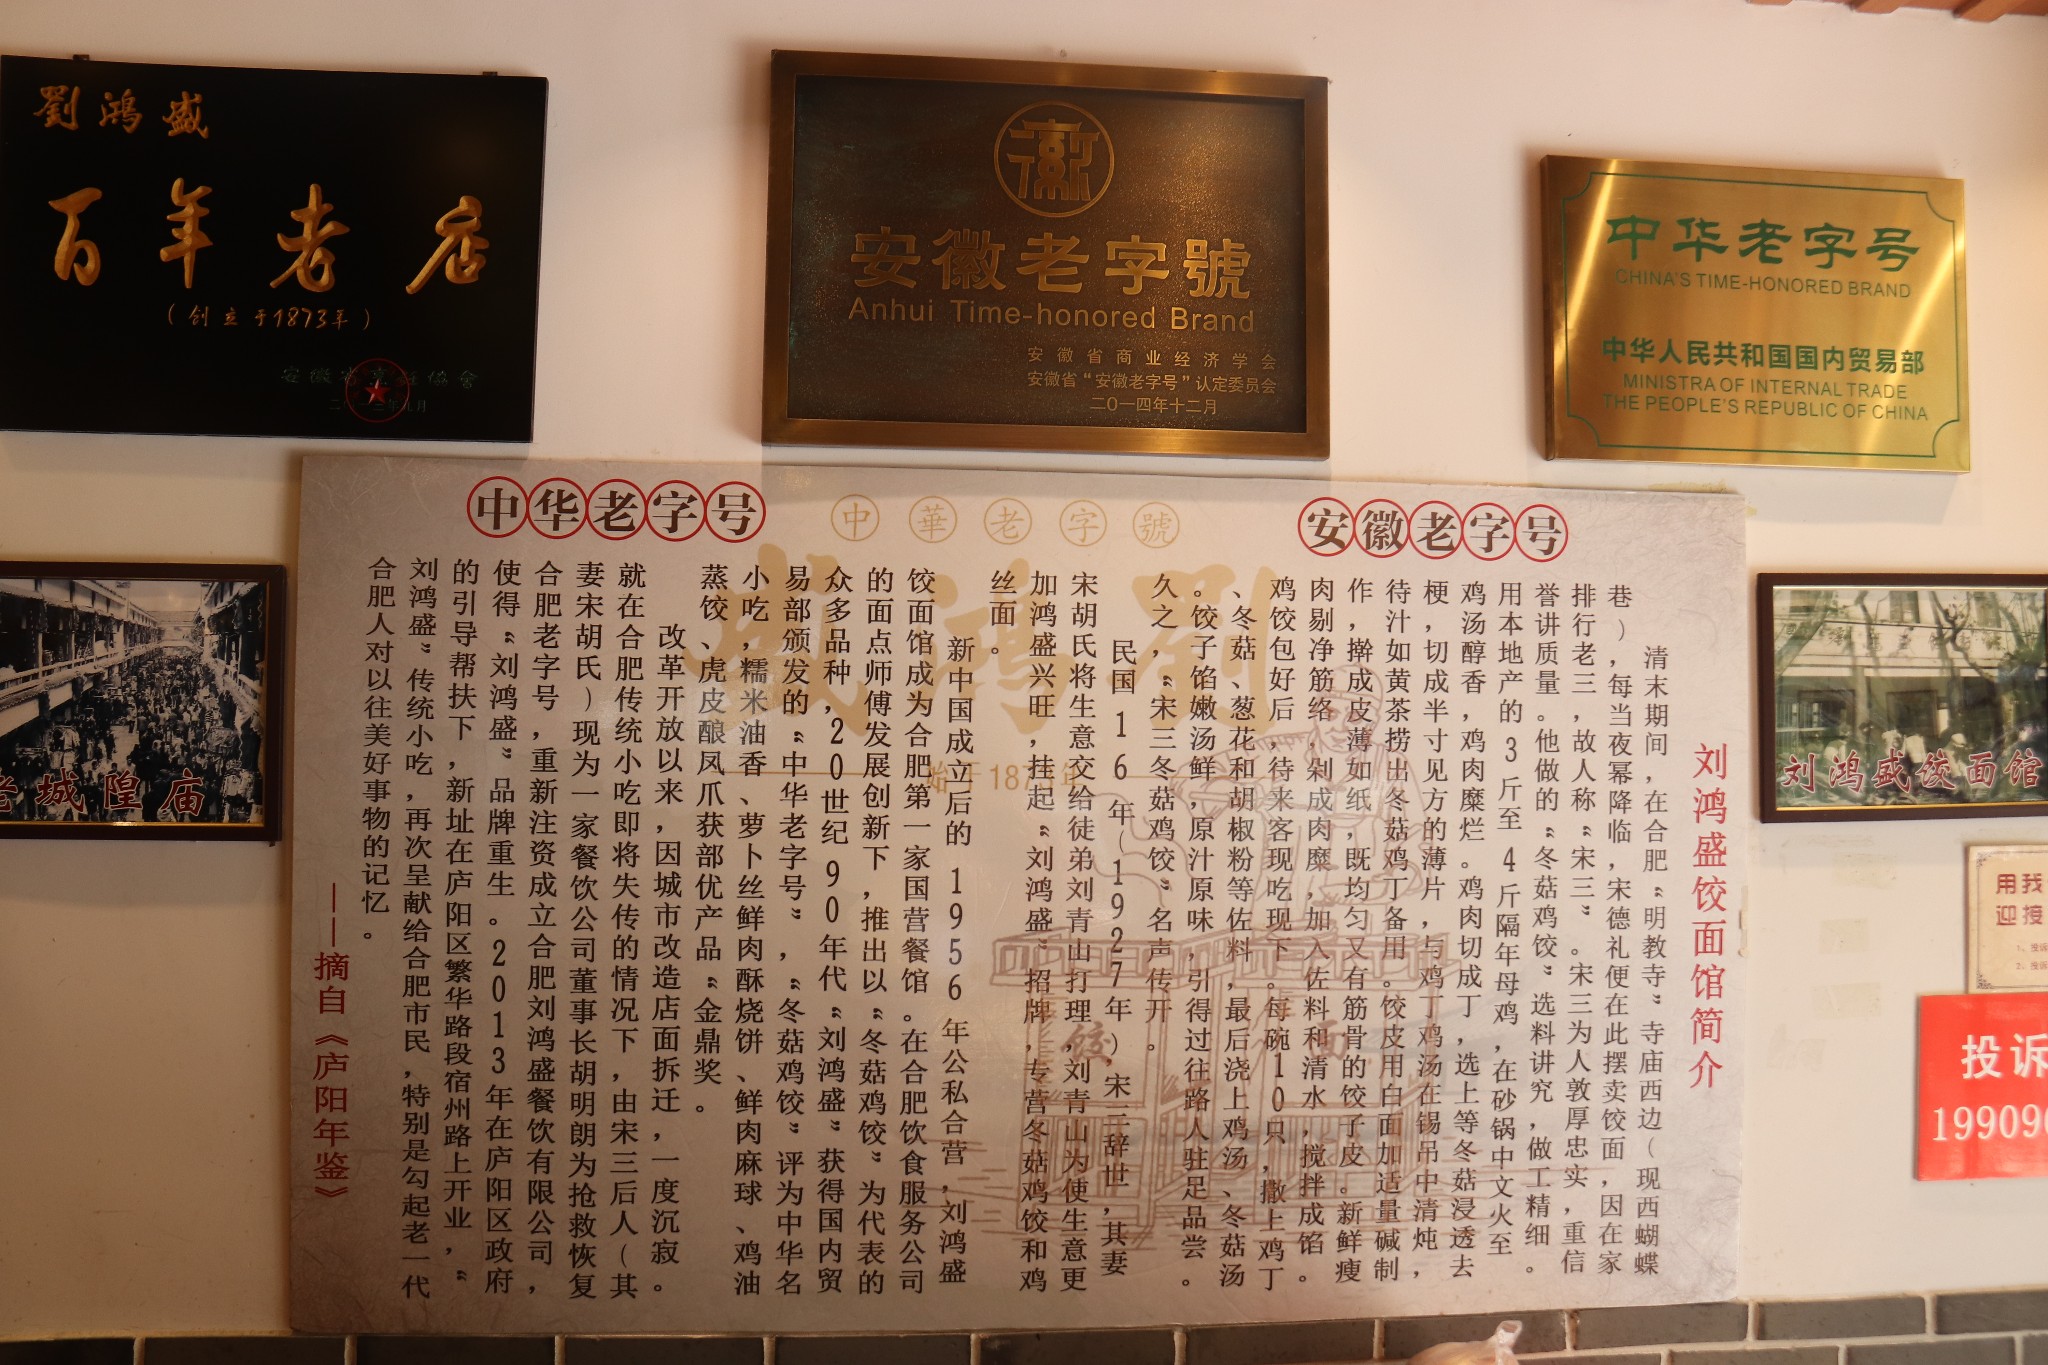 劉鴻盛
百年老店
(创立于1873年)
安徽省烹飪協會
安徽老字號
Anhui Time-honored Brand
安徽省商业经济学会
安徽省“安徽老字号”认定委员会
二〇一四年十二月
中华老字号
CHINA'S TIME-HONORED BRAND
中华人民共和国国内贸易部
MINISTRA OF INTERNAL TRADE
THE PEOPLE'S REPUBLIC OF CHINA
中华老字号
中華老字號
安徽老字号
劉鴻盛
始于1873年
饺面
刘鸿盛饺面馆简介
清末期间,在合肥“明教寺”寺庙西边(现西蝴蝶
巷),每当夜幂降临,宋德礼便在此摆卖饺面,因在家
排行老三,故人称“宋三”。宋三为人敦厚忠实,重信
誉讲质量。他做的“冬菇鸡饺”选料讲究,做工精细。
用本地产的3斤至4斤隔年母鸡,在砂锅中文火至
鸡汤醇香,鸡肉糜烂。鸡肉切成丁,选上等冬菇浸透去
梗,切成半寸见方的薄片,与鸡丁鸡汤在锡吊中清炖,
待汁如黄茶捞出冬菇鸡丁备用。饺皮用白面加适量碱制
作,擀成皮薄如纸,既均匀又有筋骨的饺子皮。新鲜瘦
肉剔净筋络,剁成肉糜,加入佐料和清水,搅拌成馅。
鸡饺包好后,待来客现吃现下。每碗10只,撒上鸡丁
、冬菇、葱花和胡椒粉等佐料,最后浇上鸡汤、冬菇汤
。饺子馅嫩汤鲜,原汁原味,引得过往路人驻足品尝。
久之,“宋三冬菇鸡饺”名声传开。
民国16年(1927年),宋三辞世,其妻
宋胡氏将生意交给徒弟刘青山打理,刘青山为使生意更
加鸿盛兴旺,挂起“刘鸿盛”招牌,专营冬菇鸡饺和鸡
丝面。
新中国成立后的1956年公私合营,刘鸿盛
饺面馆成为合肥第一家国营餐馆。在合肥饮食服务公司
的面点师傅发展创新下,推出以“冬菇鸡饺”为代表的
众多品种,20世纪90年代“刘鸿盛”获得国内贸
易部颁发的“中华老字号”,“冬菇鸡饺”评为中华名
小吃,糯米油香、萝卜丝鲜肉酥烧饼、鲜肉麻球、鸡油
蒸饺、虎皮酿凤爪获部优产品“金鼎奖。
改革开放以来,因城市改造店面拆迁,一度沉寂。
就在合肥传统小吃即将失传的情况下,由宋三后人(其
妻宋胡氏)现为一家餐饮公司董事长胡明朗为抢救恢复
合肥老字号,重新注资成立合肥刘鸿盛餐饮有限公司,
使得“刘鸿盛”品牌重生。2013年在庐阳区政府
的引导帮扶下,新址在庐阳区繁华路段宿州路上开业,“
刘鸿盛”传统小吃,再次呈献给合肥市民,特别是勾起老一代
合肥人对以往美好事物的记忆。
——摘自《庐阳年鉴》
老城隍庙
刘鸿盛饺面馆
用我
迎接
投诉
199096